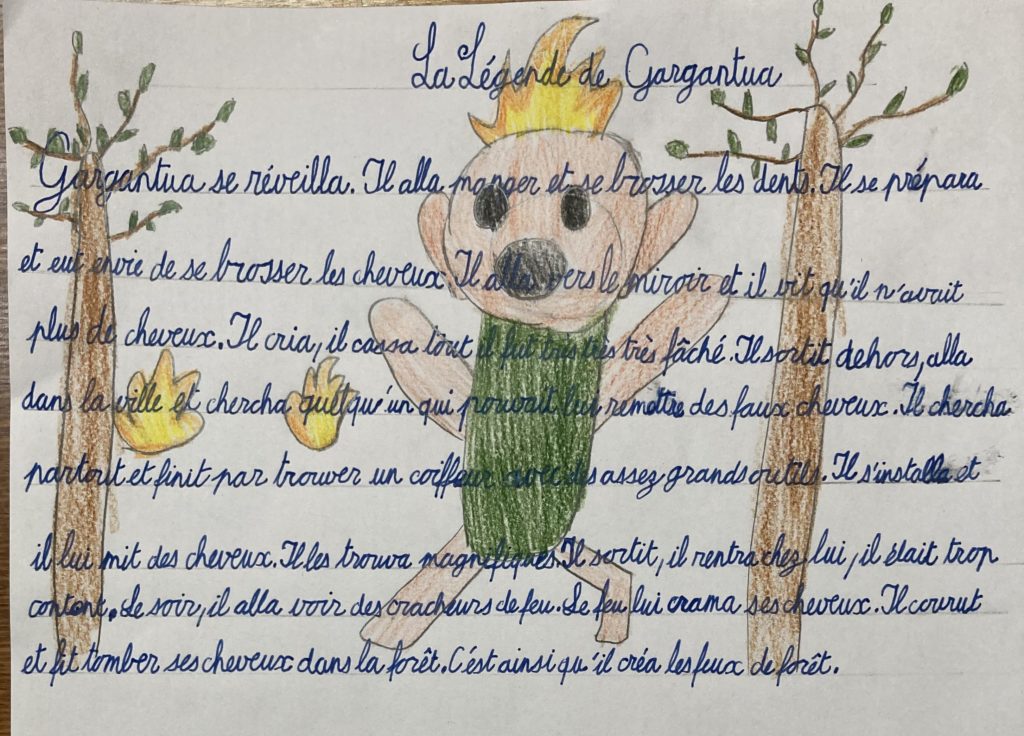 La Légende de Gargantua
Gargantua se réveilla. Il alla manger et se brosser les dents. Il se prépara
et eut envie de se brosser les cheveux. Il alla vers le miroir et il vit qu'il n'avait
plus de cheveux. Il cria, il cassa tout il fut très très très fâché. Il sortit dehors, alla
dans la ville et chercha quelqu'un qui pouvait lui remettre des faux cheveux. Il chercha
partout et finit par trouver un coiffeur avec des assez grands outils. Il s'installa et
il lui mit des cheveux. Il les trouva magnifiques. Il sortit, il rentra chez lui, il était trop
content. Le soir, il alla voir des cracheurs de feu. Le feu lui crama ses cheveux. Il courut
et fit tomber ses cheveux dans la forêt. C'est ainsi qu'il créa les feux de forêt.